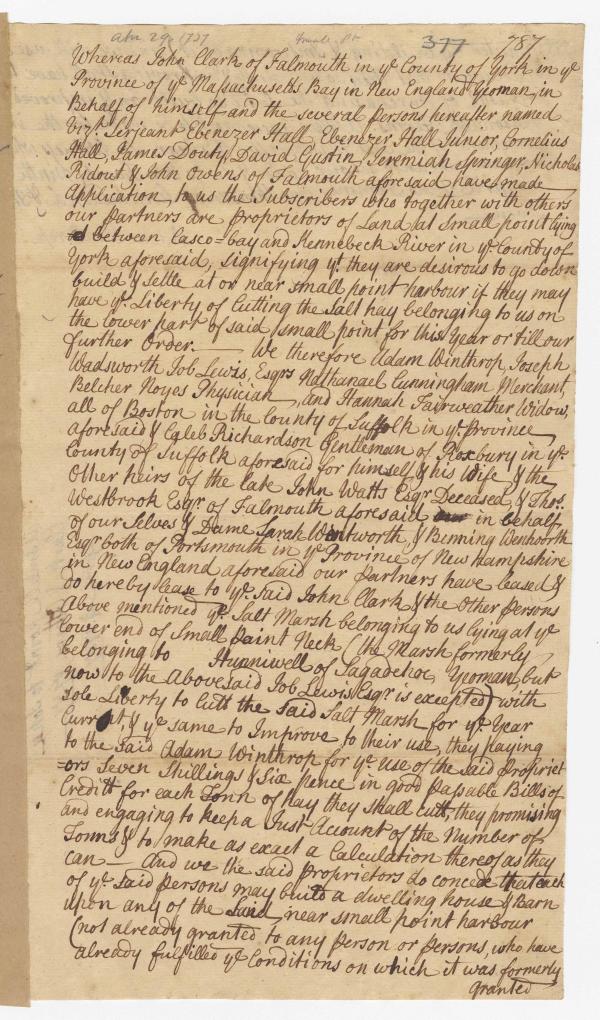 Apr 29. 1737 Small Pt 377 787
Whereas John Clark of Falmouth in ye County of York in ye
Province of ye Massachusetts Bay in New England Yeoman, in
Behalf of himself and the several Persons hereafter named
Vizt. Serjeant Ebenezer Hall, Ebenezer Hall Junior, Cornelius
Hall, James Douty, David Gustin, Jeremiah Springer, Nicholas
Ridout & John Owens of Falmouth aforesaid have made
Application to us the Subscribers who together with others
our Partners are Proprietors of Land at Small point lying
between Casco=bay and Kennebeck River in ye County of
York aforesaid, signifying yt. they are desirous to go down
build & settle at or near small point harbour if they may
have ye Liberty of Cutting the Salt hay belonging to us on
the lower part of said small point for this Year or till our
further Order. — We therefore Adam Winthrop, Joseph
Wadsworth Job Lewis, Esqrs Nathanael Cunningham Merchant,
Belcher Noyes Physician, and Hannah Fairweather Widow,
all of Boston in the County of Suffolk in ye Province
aforesaid & Caleb Richardson Gentleman of Roxbury in ye
County of Suffolk aforesaid for himself & his Wife & the
Other heirs of the late John Watts Esqr Deceased, & Thos.
Westbrook Esqr. of Falmouth aforesaid in behalf
of our Selves & Dame Sarah Wentworth & Benning Wentworth
Esqr both of Portsmouth in ye Province of New Hampshire
in New England aforesaid our partners have leased &
do hereby lease to ye said John Clark & the Other Persons
Above mentioned ye Salt Marsh belonging to us lying at ye
lower end of Small Point Neck (the Marsh formerly
belonging to Hunniwell of Sagadehoc Yeoman, but
now to the Abovesaid Job Lewis Esqr is excepted) with
sole Liberty to Cutt the said Salt Marsh for ye Year
Currat, & ye same to Improve to their use, they paying
to the said Adam Winthrop for ye use of the said Propriet
=ors Seven Shillings & Six pence in good Passable Bills of
Creditt for each Tonn of hay they shall cutt, they promising
and engaging to keep a Just Account of the Number of
Tonns & to make as exact a Calculation thereof as they
can — And we the said Proprietors do concede that each
of ye said Persons may build a dwelling house & Barn
upon any of the Land near small point harbour
(not already granted to any Person or Persons, who have
already fulfilled ye Conditions on which it was formerly
granted